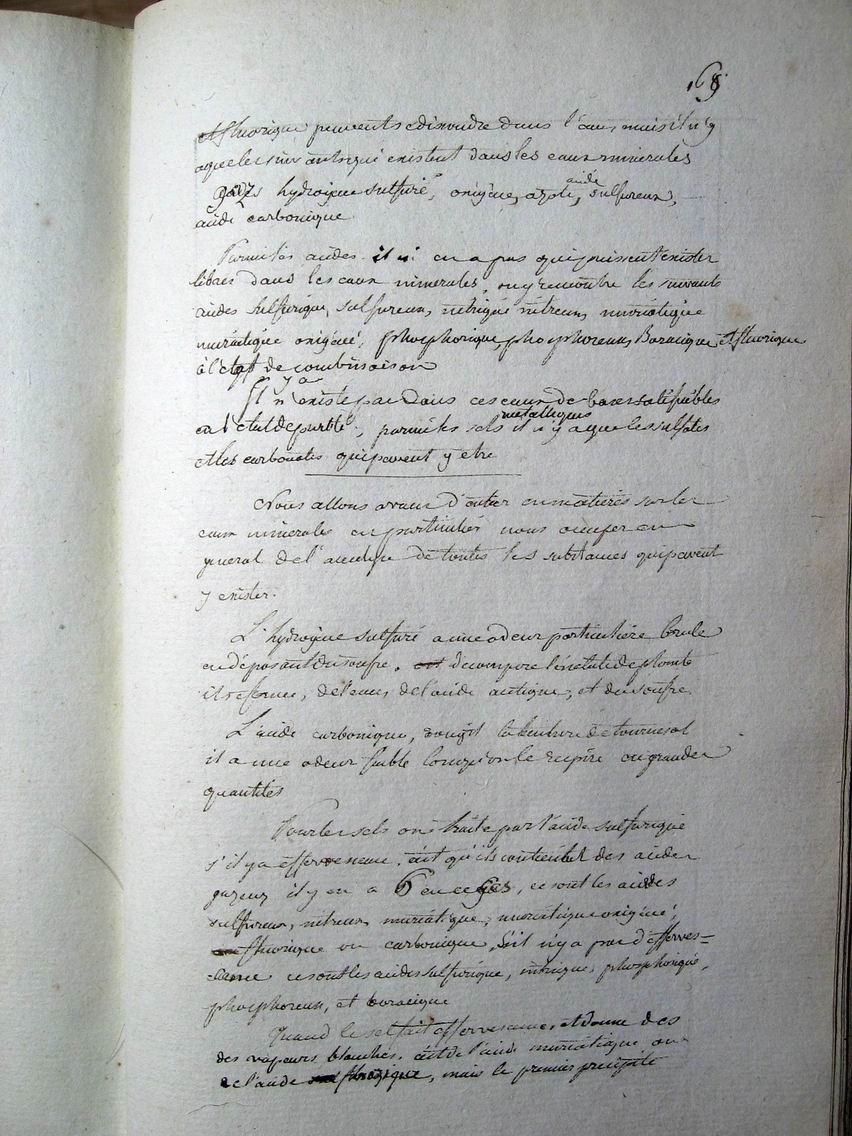 168
et fluorique peuvent se dissoudre dans l'eau, mais il n'y
a que les suivants qui existent dans les eaux minerales
gazs hydrogene sulfuré, oxigene, azote, acide sulfureux,
acide carbonique
Parmi les acides il n'i en a pas qui puissent exister
libres dans les eaux minerales, on y rencontre les suivants
acides sulfurique, sulfureux, nitrique nitreux, muriatique
muriatique oxigené, phosphorique phosphoreux, Boracique et fluorique
à l'etat de combinaison
Il n'y a existe pas dans ces eaux de bases salifiables
en l'etat de pureté; parmi les sels metalliques il n'y a que les sulfates
et les carbonates qui peuvent y etre
Nous allons avant d'entrer en matieres sur les
eaux minerales en particulier nous occuper en
general de l'analyse de toutes les substances qui peuvent
y exister.
L'hydrogene sulfuré a une odeur particulière brule
en déposant du soufre, decompose l'acetate de plomb
il se forme, de l'eau de l'acide acetique, et du soufre
L'acide carbonique, rougit la teinture de tournesol
il a une odeur faible lorsqu'on le respire en grandes
quantités
Pour les sels on traite par l'acide sulfurique
s'il y a effervescence, c'est qu'ils contiennent des acides
gazeux il y en a 6 en ce gas, ce sont les acides
sulfureux, nitreux, muriatique, muriatique oxigené,
fluorique ou carbonique, s'il n'y a pas d'efferves=
cence ce sont les acides sulfurique, nitrique, phosphorique,
phosphoreux, et boracique
Quand le sel fait effervescence, et donne des
des vapeurs blanches, c'est de l'acide muriatique ou
de l'acide fluorique, mais le premier précipite